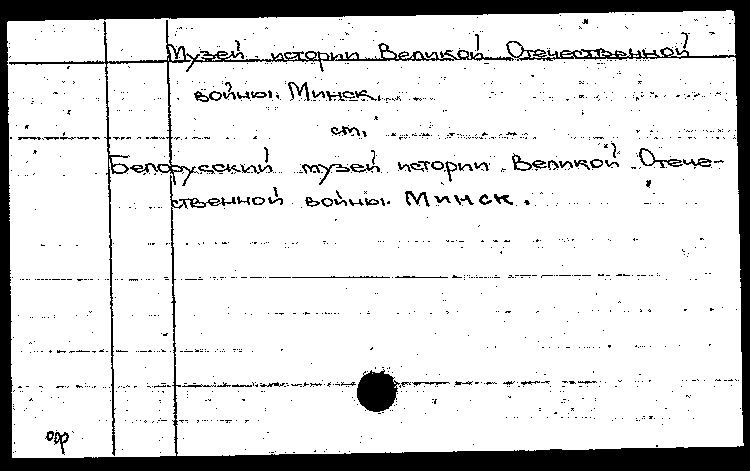 Музей истории Великой Отечественной
войны. Минск.
см.
Белорусский музей истории Великой Отече-
ственной войны. Минск.